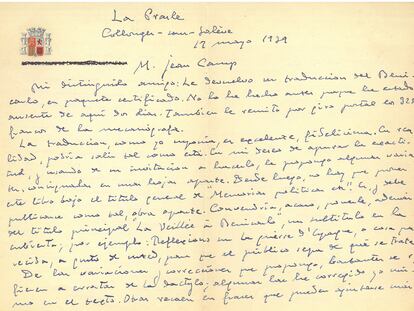 La Prasle
Collonges-sous-Salève
17 mayo 1939
M. Jean Camp
Mi distinguido amigo: Le devuelvo su traducción del Beni-
carló, en paquete certificado. No lo he hecho antes porque he estado
ausente de aquí dos días. También le remito por giro postal los 325
francos de la mecanógrafa.
La traducción, como yo suponía, es excelente, fidelísima. En rea-
lidad, podría salir tal como está. En mi deseo de apurar la exacti-
tud, y usando de su invitación a hacerlo, le propongo algunas varian-
tes, consignadas en una hoja aparte. Desde luego, no hay que poner
este libro bajo el título general de "Memorias políticas etc". Y debe
publicarse como tal, obra aparte. Convendría, acaso, ponerle, además
del título principal La Veillée à Benicarló, un subtítulo en la
cubierta, por ejemplo: Réflexions sur la guerre d'Espagne, o cosa pa-
recida, a gusto de usted, para que el público sepa de qué se trata.
De las variaciones y correcciones que propongo, bastantes se re-
fieren a erratas de la dactylo; algunas las he corregido yo mis-
mo en el texto. Otras recaen en frases que pueden ajustarse más